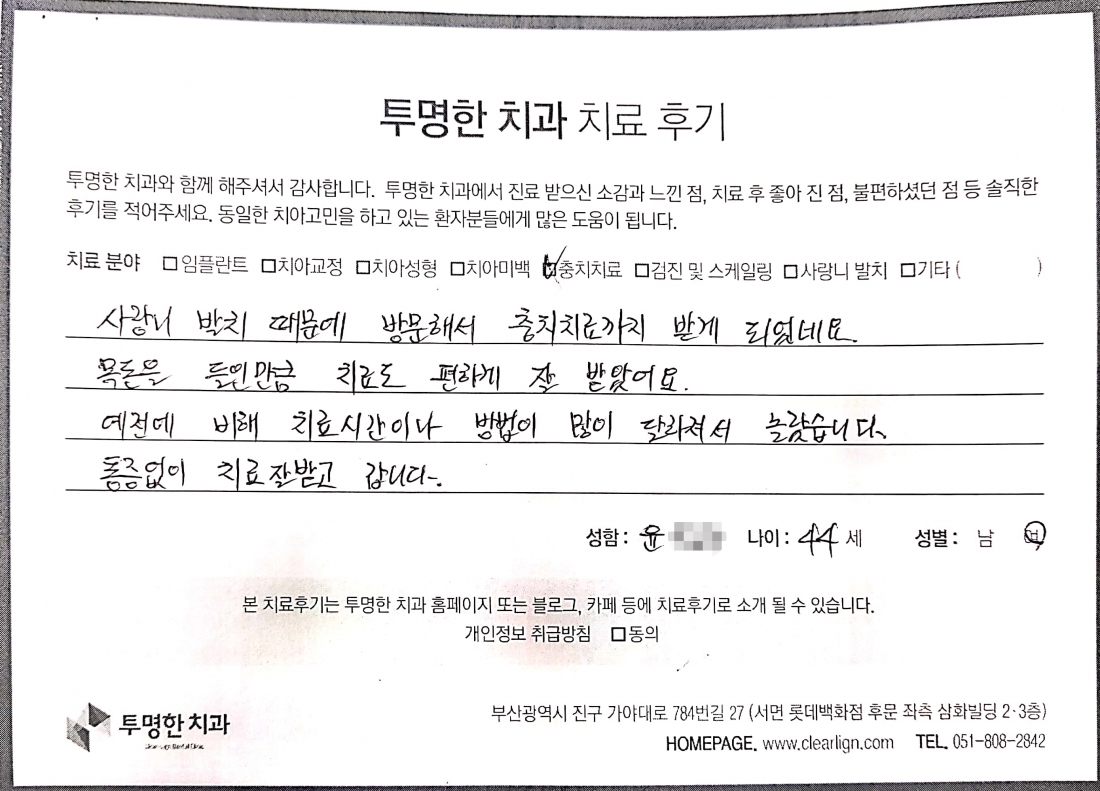 투명한 치과 치료 후기
투명한 치과와 함께 해주셔서 감사합니다. 투명한 치과에서 진료 받으신 소감과 느낀 점, 치료 후 좋아 진 점, 불편하셨던 점 등 솔직한
후기를 적어주세요. 동일한 치아고민을 하고 있는 환자분들에게 많은 도움이 됩니다.
치료 분야 □임플란트 □치아교정 □치아성형 □치아미백 ☑충치치료 □검진 및 스케일링 □사랑니 발치 □기타 ( )
사랑니 발치 때문에 방문해서 충치치료까지 받게 되었네요.
목돈을 들인만큼 치료도 편하게 잘 받았어요.
예전에 비해 치료시간이나 방법이 많이 달라져서 놀랐습니다.
통증없이 치료잘받고 갑니다.
성함 : 윤 나이 : 44 세 성별 : 남 여
본 치료후기는 투명한 치과 홈페이지 또는 블로그, 카페 등에 치료후기로 소개 될 수 있습니다.
개인정보 취급방침 □동의
투명한 치과
부산광역시 진구 가야대로 784번길 27 (서면 롯데백화점 후문 좌측 삼화빌딩 2·3층)
HOMEPAGE. www.clearlign.com TEL. 051-808-2842